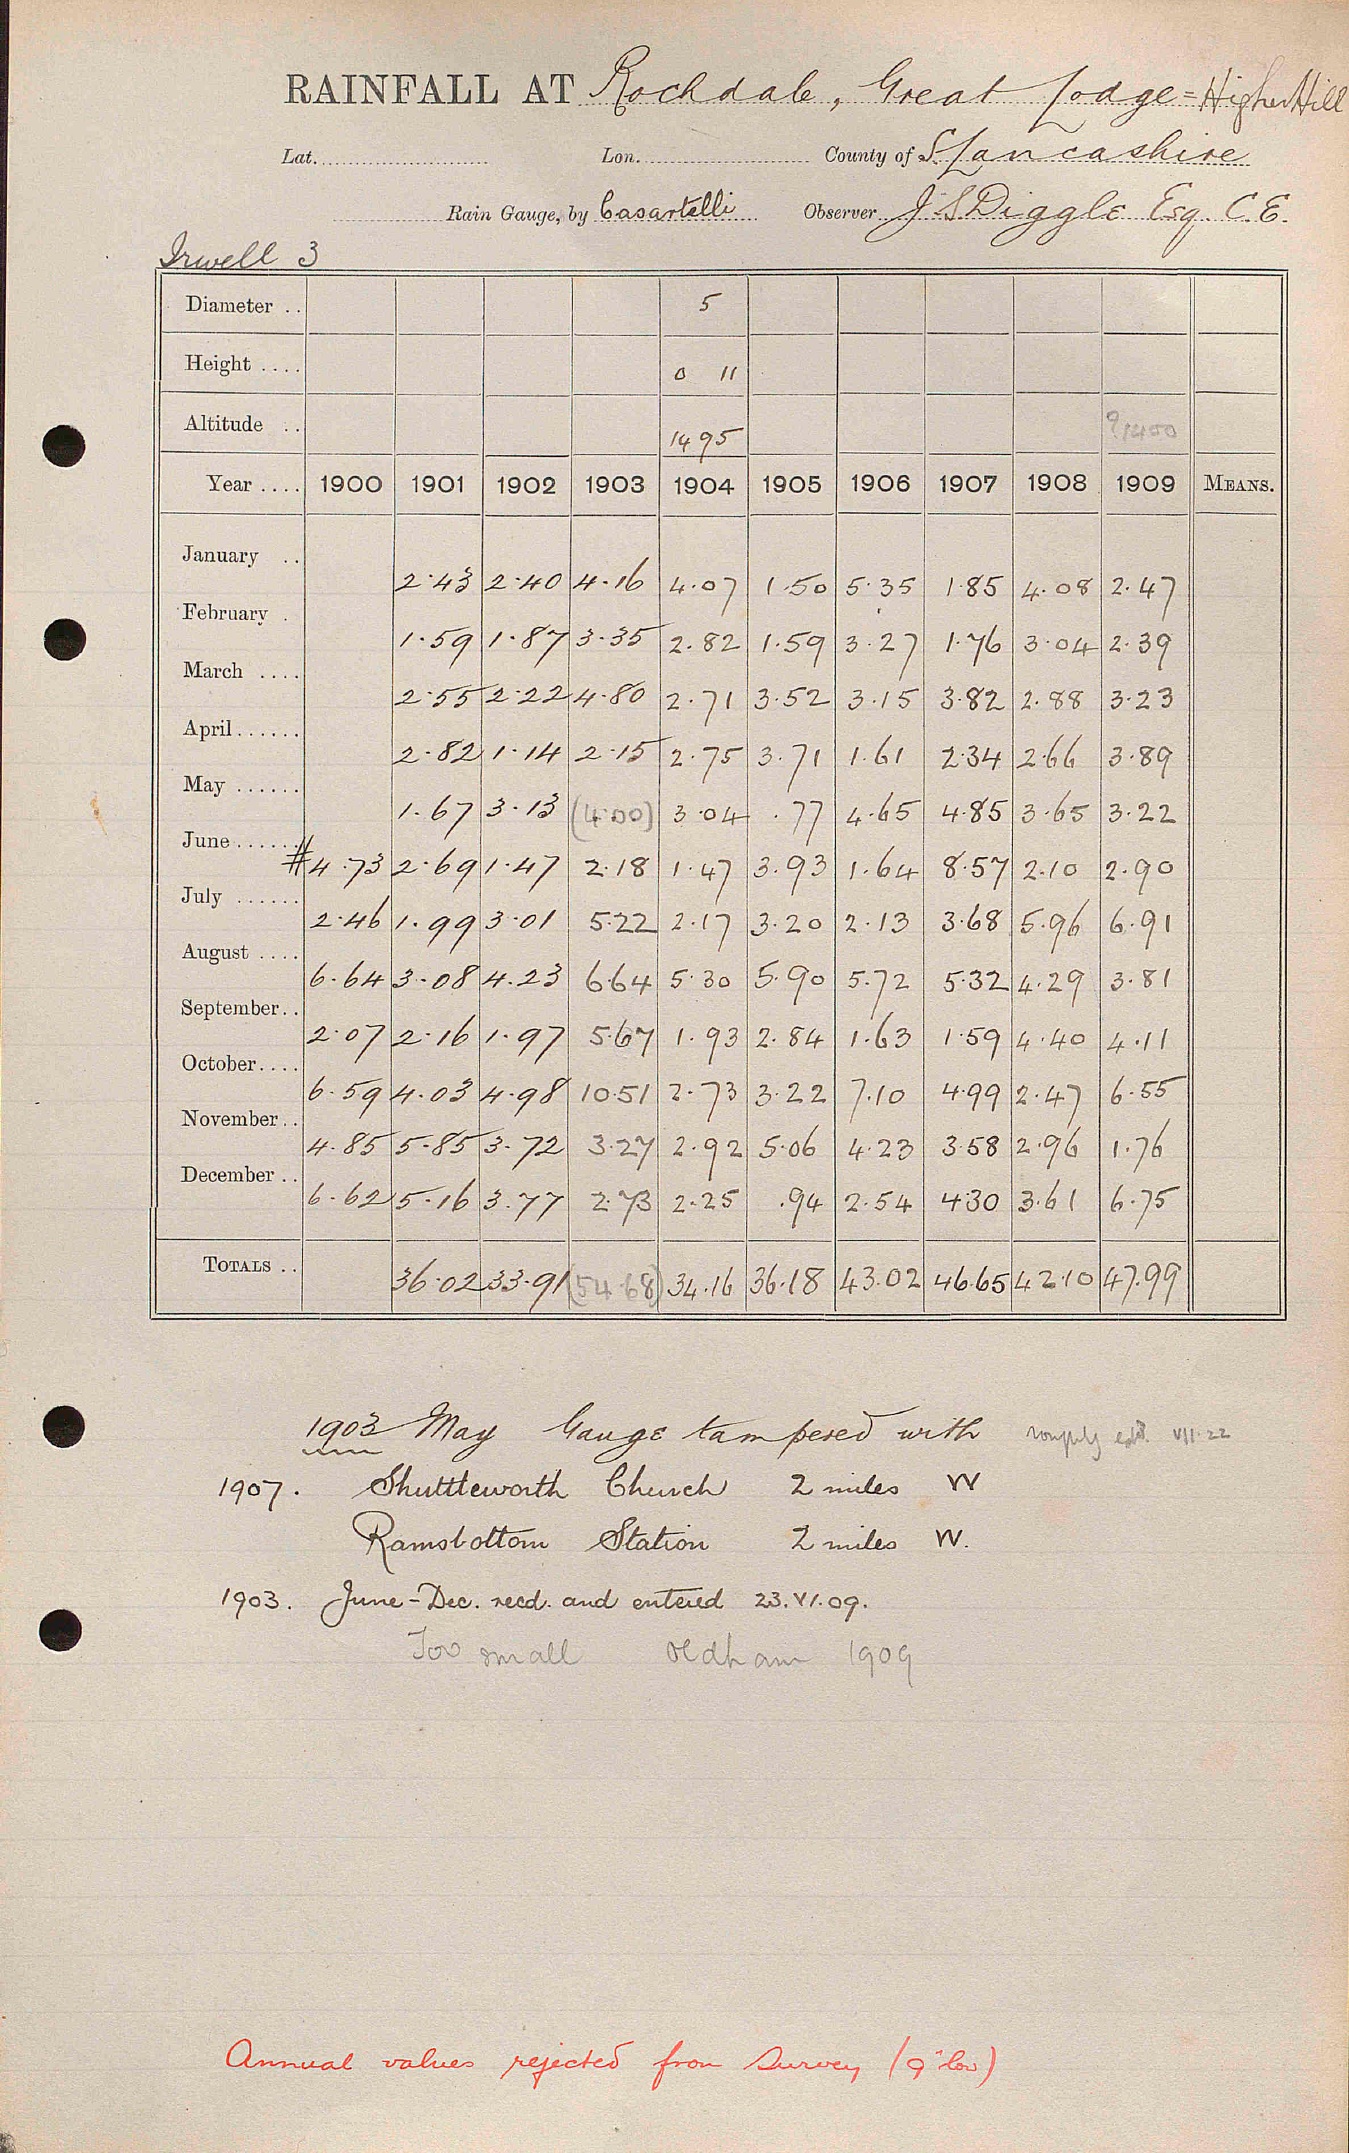 RAINFALL AT Rochdale, Great Lodge = Higher Hill
Lat. Lon. County of S. Lancashire
Rain Gauge, by Casartelli Observer J S Diggle Esq. C.E.
Irwell 3
Diameter .. 5
Height .... 0 11
Altitude .. 1495 ?1400
Year .... 1900 1901 1902 1903 1904 1905 1906 1907 1908 1909 MEANS.
January .. 2.43 2.40 4.16 4.07 1.50 5.35 1.85 4.08 2.47
February . 1.59 1.87 3.35 2.82 1.59 3.27 1.76 3.04 2.39
March .... 2.55 2.22 4.80 2.71 3.52 3.15 3.82 2.88 3.23
April...... 2.82 1.14 2.15 2.75 3.71 1.61 2.34 2.66 3.89
May ...... 1.67 3.13 (4.00) 3.04 .77 4.65 4.85 3.65 3.22
June...... # 4.73 2.69 1.47 2.18 1.47 3.93 1.64 8.57 2.10 2.90
July ...... 2.46 1.99 3.01 5.22 2.17 3.20 2.13 3.68 5.96 6.91
August .... 6.64 3.08 4.23 6.64 5.30 5.90 5.72 5.32 4.29 3.81
September.. 2.07 2.16 1.97 5.67 1.93 2.84 1.63 1.59 4.40 4.11
October.... 6.59 4.03 4.98 10.51 2.73 3.22 7.10 4.99 2.47 6.55
November.. 4.85 5.85 3.72 3.27 2.92 5.06 4.23 3.58 2.96 1.76
December .. 6.62 5.16 3.77 2.73 2.25 .94 2.54 4.30 3.61 6.75
TOTALS .. 36.02 33.91 (54.68) 34.16 36.18 43.02 46.65 42.10 47.99
1903 May Gauge tampered with roughly estd. VII.22
1907. Shuttleworth Church 2 miles W
Ramsbottom Station 2 miles W.
1903. June-Dec. recd. and entered 23.VI.09.
Too small Oldham 1909
Annual values rejected from Survey (9" low)